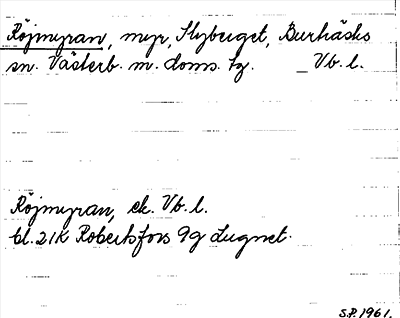 Röjmyran, myr, Slyberget, Burträsks
sn. Västerb. m. doms. tg. Vb. l.
Röjmyran, ek. Vb. l.
bl. 21K Robertsfors 9g Lugnet.
S.P. 1961.